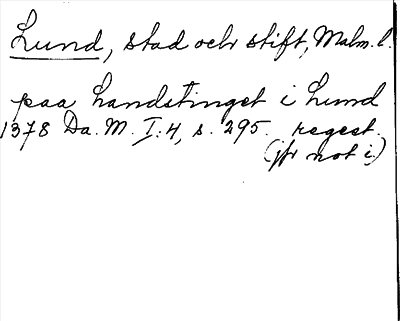 Lund, stad och stift, Malm. l.
paa Landstinget i Lund
1378 Da. M. I: 4, s. 295. regest.
(jfr not i)